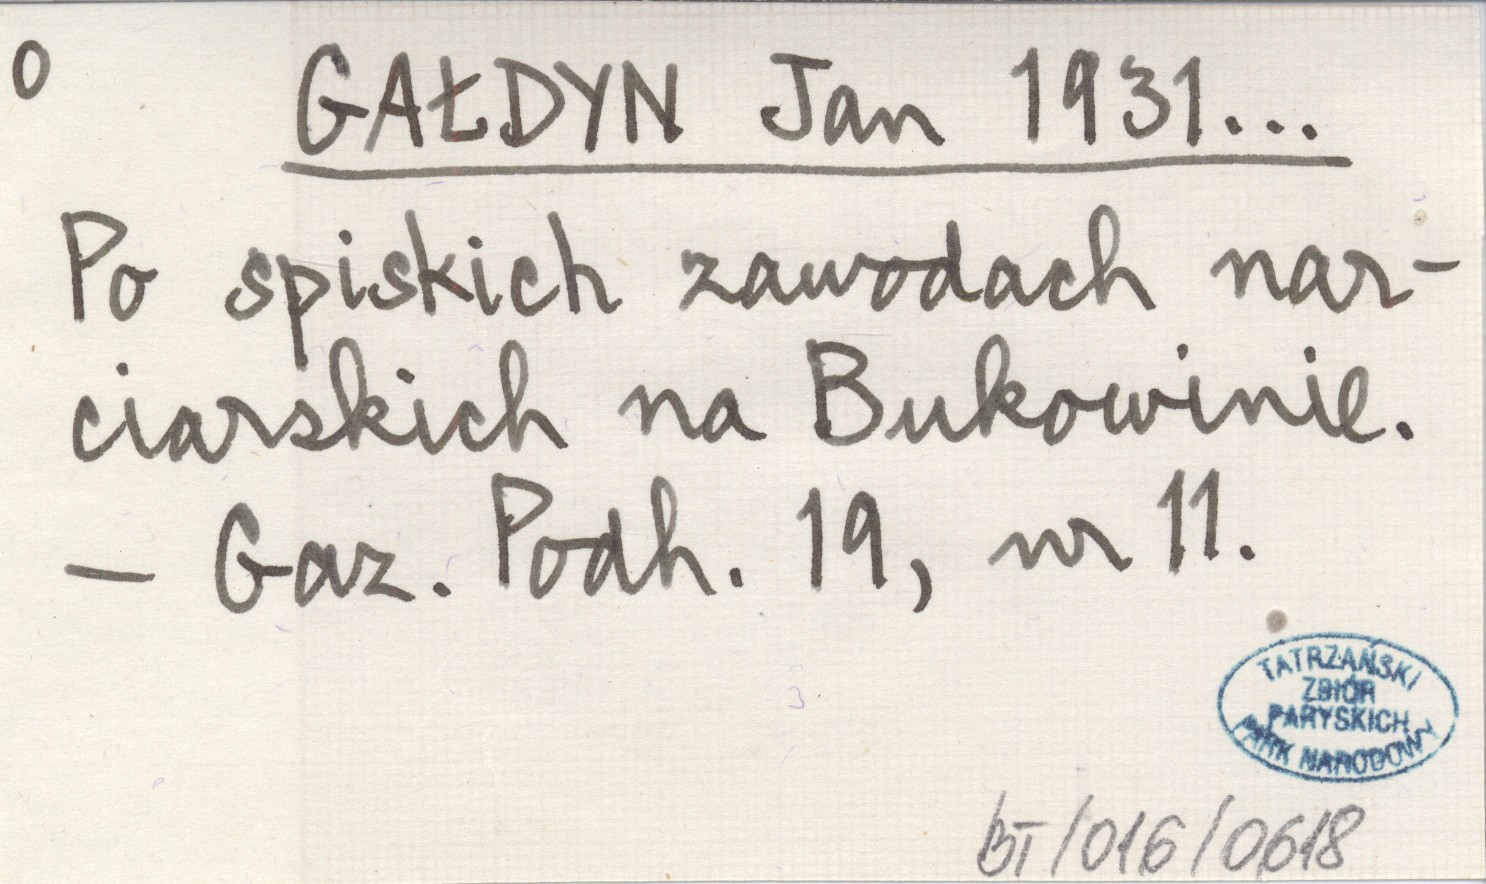 o
GAŁDYN Jan 1931...
Po spiskich zawodach nar-
ciarskich na Bukowinie.
— Gaz. Podh. 19, nr 11.
TATRZAŃSKI
ZBIÓR
PARYSKICH
PARK NARODOWY
BT/016/0618